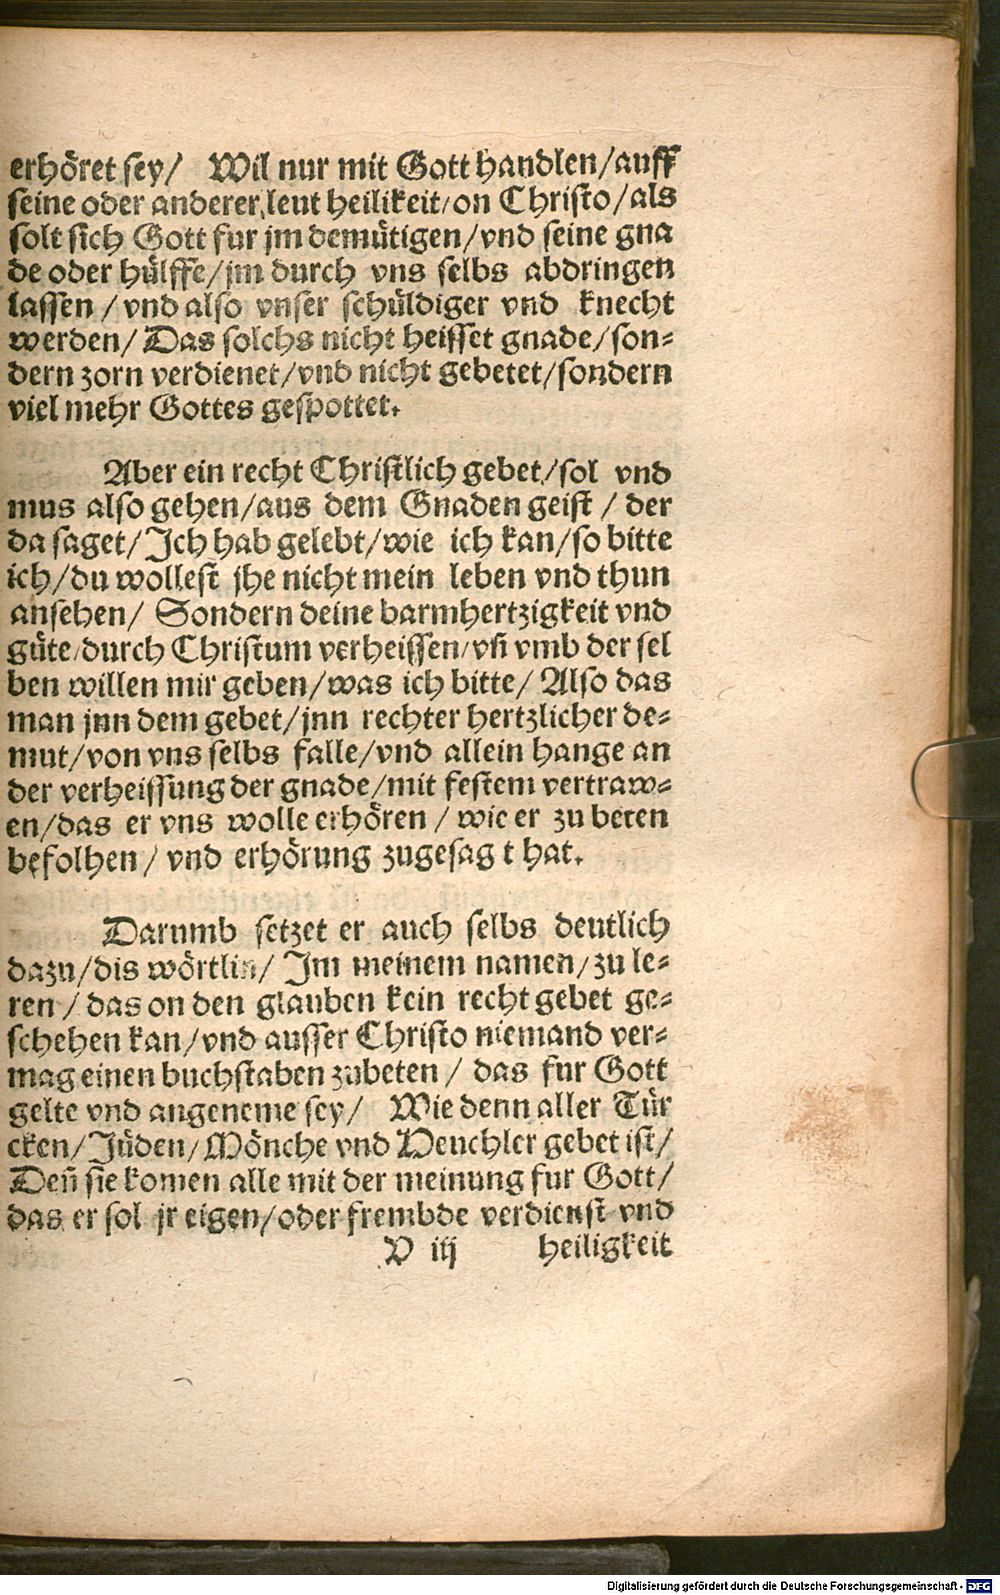 erhöret sey/ Wil nur mit Gott handlen/auff
seine oder anderer leut heilikeit/on Christo/als
solt sich Gott fur jm demütigen/vnd seine gna
de oder hülffe/jm durch vns selbs abdringen
lassen/vnd also vnser schüldiger vnd knecht
werden/Das solchs nicht heisset gnade/son-
dern zorn verdienet/vnd nicht gebetet/sondern
viel mehr Gottes gespottet.
Aber ein recht Christlich gebet/sol vnd
mus also gehen/aus dem Gnaden geist/der
da saget/Ich hab gelebt/wie ich kan/so bitte
ich/du wollest jhe nicht mein leben vnd thun
ansehen/ Sondern deine barmhertzigkeit vnd
güte/durch Christum verheissen/vñ vmb der sel
ben willen mir geben/was ich bitte/ Also das
man jnn dem gebet/jnn rechter hertzlicher de-
mut/von vns selbs falle/vnd allein hange an
der verheissung der gnade/mit festem vertraw-
en/das er vns wolle erhören/wie er zu beten
befolhen/vnd erhörung zugesag t hat.
Darumb setzet er auch selbs deutlich
dazu/dis wörtlin/ Im meinem namen/zu le-
ren/das on den glauben kein recht gebet ge-
schehen kan/vnd ausser Christo niemand ver-
mag einen buchstaben zubeten/das fur Gott
gelte vnd angeneme sey/ Wie denn aller Tür
cken/Jüden/Mönche vnd Heuchler gebet ist/
Deñ sie komen alle mit der meinung fur Gott/
das er sol jr eigen/oder frembde verdienst vnd
V iij heiligkeit
Digitalisierung gefördert durch die Deutsche Forschungsgemeinschaft - DFG